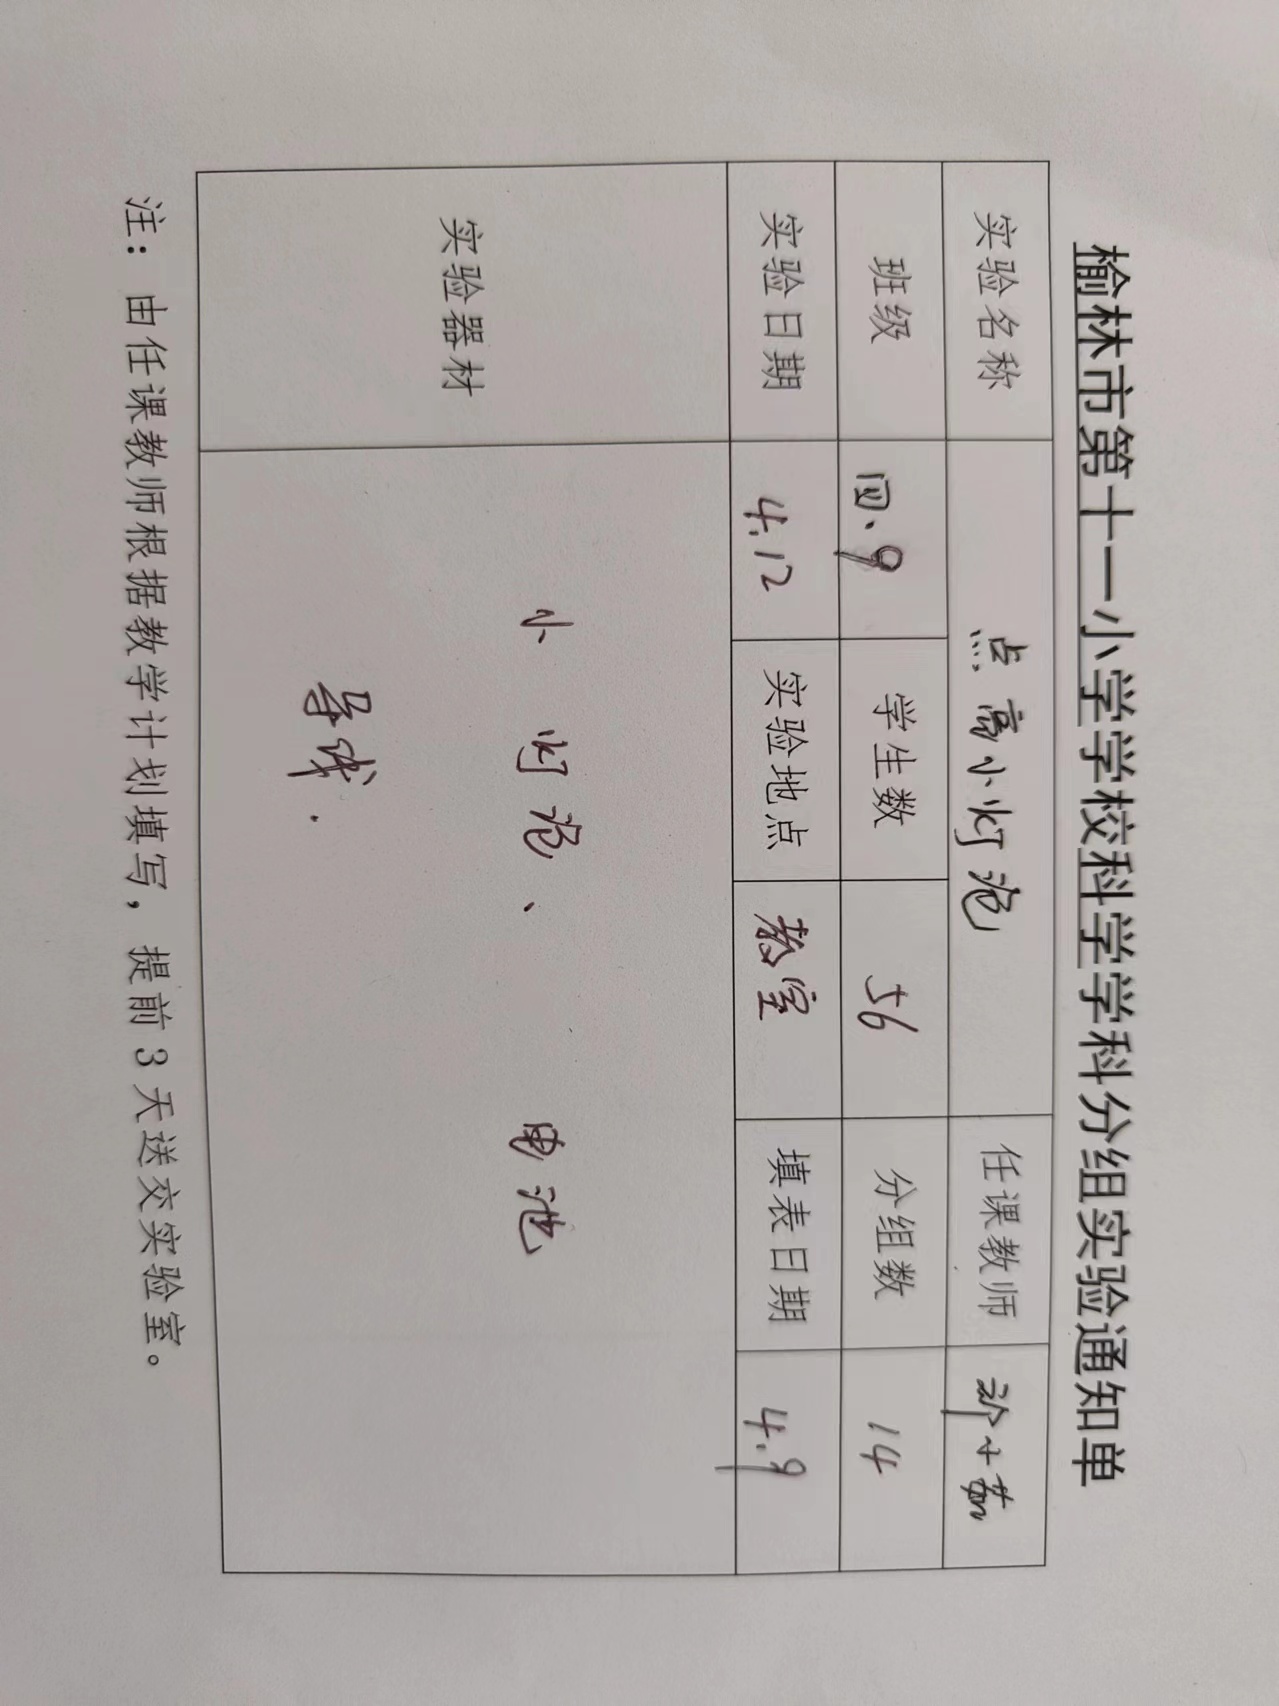 榆林市第十一小学学校科学学科分组实验通知单
实验名称 点亮小灯泡 任课教师
班级 四.9 学生数 56 分组数 14
实验日期 4.12 实验地点 教室 填表日期 4.9
实验器材 小灯泡、电池
导线.
注：由任课教师根据教学计划填写，提前3天送交实验室。